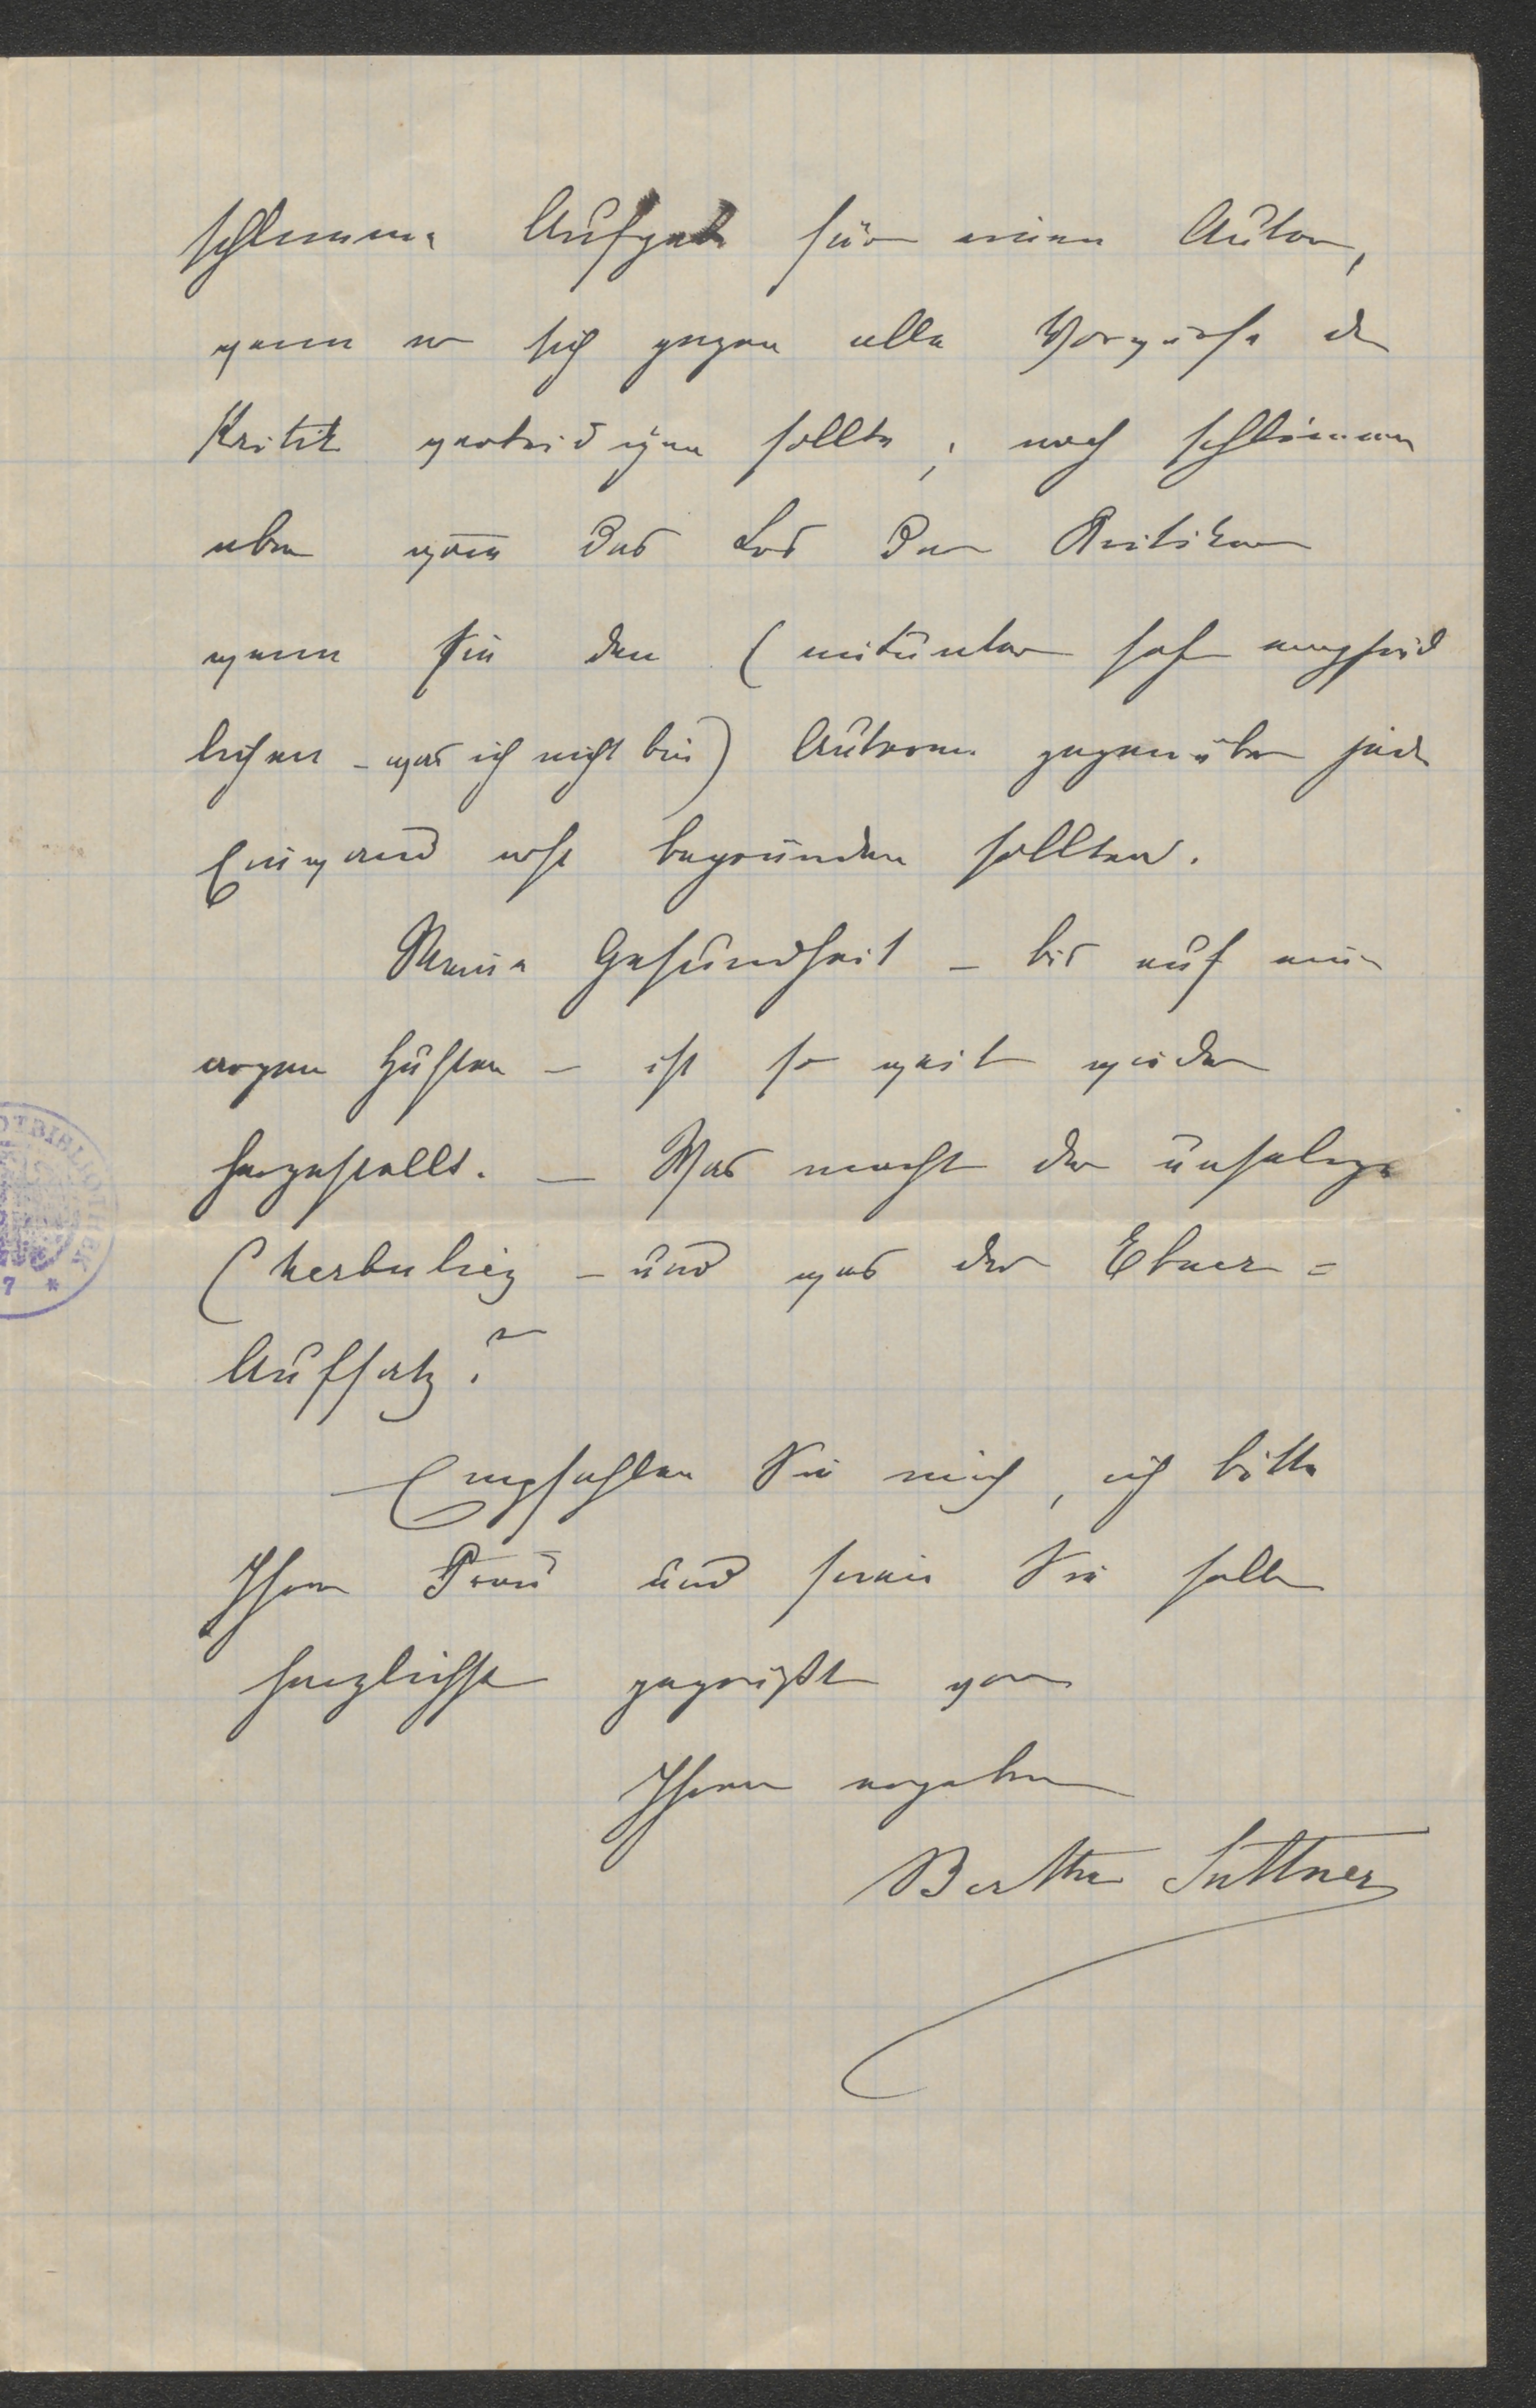 schlimme Aufgabe für einen Autor,
wenn er sich gegen alle Vorwürfe der
Kritik verteidigen sollte; noch schlimmer
aber wäre das Los der Kritiker
wenn sie den (mitunter sehr empfind
lichen – was ich nicht bin) Autoren gegenüber jeden
Einwand erst begründen sollten.
Meine Gesundheit – bis auf einen
argen Husten – ist so weit wieder
hergestellt. – Was macht der unselige
Cherbuliez – und was der Ebner=
Aufsatz?
Empfehlen Sie mich, ich bitte
Ihrer Frau und seien Sie selber
herzlichst gegrüßt von
Ihrer ergebenen
Bertha Suttner
OTBIBLIOTHEK
7 *